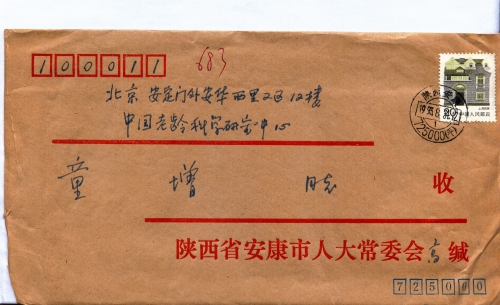 100011
683
北京 安定门外安华西里2区12楼
中国老龄科学研究中心
童 增 同志 收
陕西省安康市人大常委会高缄
725000
中国人民邮政